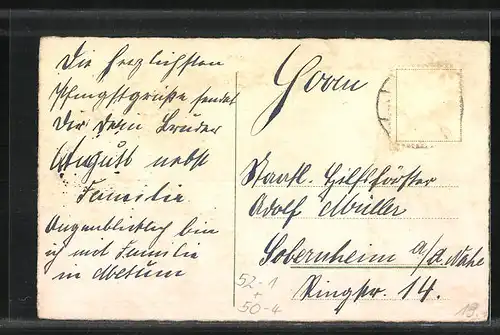 Die herzlichsten
Pfingstgrüße sendet
Dir Dein Bruder
August nebst
Familie
Augenblicklich bin
ich mit Familie
in Mesum
Herrn
Staatl. Hilfsförster
Adolf Müller
Sobernheim a/d. Nahe
Ringstr. 14.
52-1
+
50-4
19.